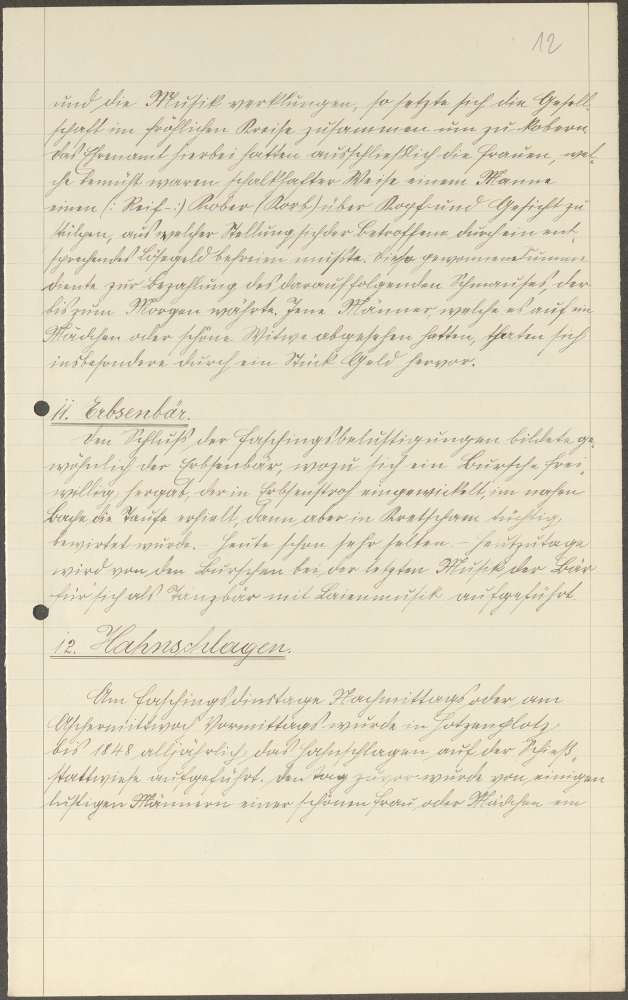 12
und die Musik verklungen, so setzte sich die Gesell-
schaft im fröhlichen Kreise zusammen um zu kobern.
Das Ehrenamt hierbei hatten ausschließlich die Frauen, wel-
che bemüht waren, schalkhafter Weise einem Manne
einen (: Reif-:) Kober (Korb) über Kopf und Gesicht zu
stülpen, aus welcher Stellung sich der Betroffene durch ein ent-
sprechendes Lösegeld befreien mußte. Diese gewonnene Summe
diente zur Bezahlung des darauffolgenden Schmauses, der
bis zum Morgen währte. Jene Männer, welche es auf ein
Mädchen oder schöne Witwe abgesehen hatten, thaten sich
insbesondere durch ein Stück Geld hervor.
11. Erbsenbär.
Den Schluß der Faschingsbelustigungen bildete ge-
wöhnlich der Erbsenbär, wozu sich ein Bursche frei-
willig hergab, der in Erbsenstroh eingewickelt, im nahen
Bache die Taufe erhielt, dann aber in Kretscham tüchtig
bewirtet wurde. – Heute schon sehr selten. – Heutzutage
wird von den Burschen bei der letzten Musik der Bär
für sich als Tanzbär mit Laienmusik aufgeführt.
12. Hahnschlagen.
Am Faschingsdinstage Nachmittags oder am
Aschermittwoch Vormittags wurde in Hotzenplotz
bis 1848 alljährlich das Hahnschlagen auf der Schieß-
stattwiese aufgeführt. Den Tag zuvor wurde von einigen
lustigen Männern einer schönen Frau oder Mädchen ein